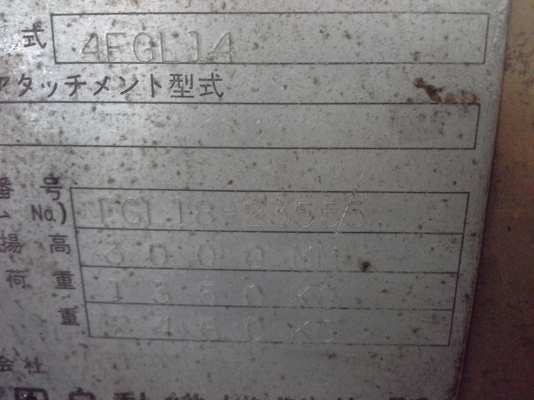 式 4FGL14
アタッチメント型式
番号
No.) FGL18-23556
揚高 3000MM
荷重 1350KG
重 2460KG
会社
自動織機製作所